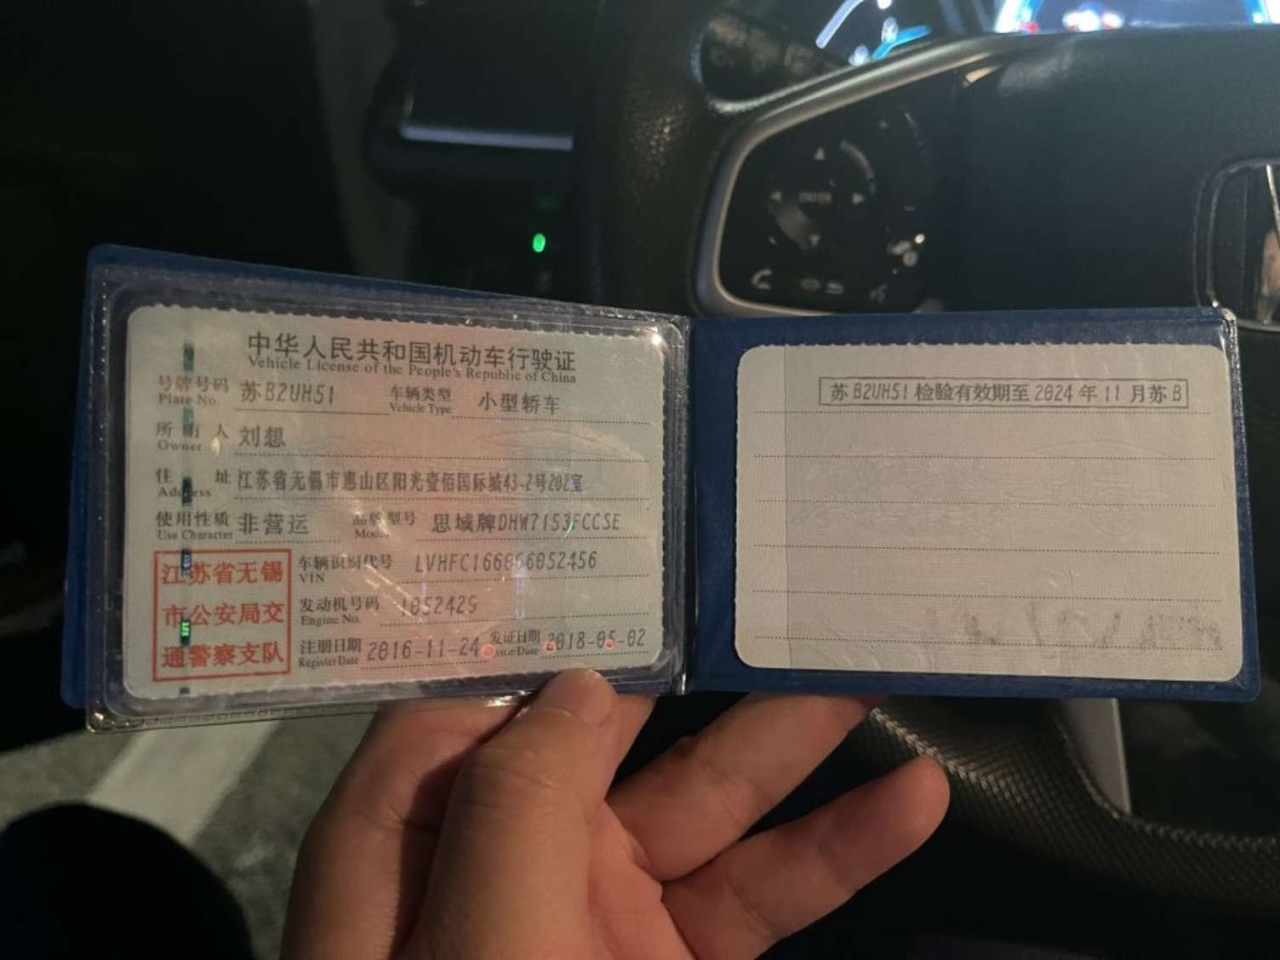 中华人民共和国机动车行驶证
Vehicle License of the People's Republic of China
号牌号码 苏B2UH51 车辆类型 小型轿车
Plate No. Vehicle Type
所有人 刘想
Owner
住址 江苏省无锡市惠山区阳光壹佰国际城43-2号202室
Address
使用性质 非营运 品牌型号 思域牌DHW7153FCCSE
Use Character Model
江苏省无锡
市公安局交
通警察支队
车辆识别代号 LVHFC166866052456
VIN
发动机号码 1052429
Engine No.
注册日期 2016-11-24 发证日期 2018-05-02
Register Date Issue Date
苏B2UH51 检验有效期至2024年11月苏B
ENTER